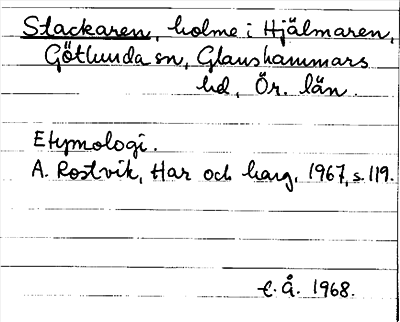 Stackaren, holme i Hjälmaren,
Götlunda sn, Glanshammars
hd, Ör. län.
Etymologi.
A. Rostvik, Har och harg, 1967, s. 119.
L. Å. 1968.